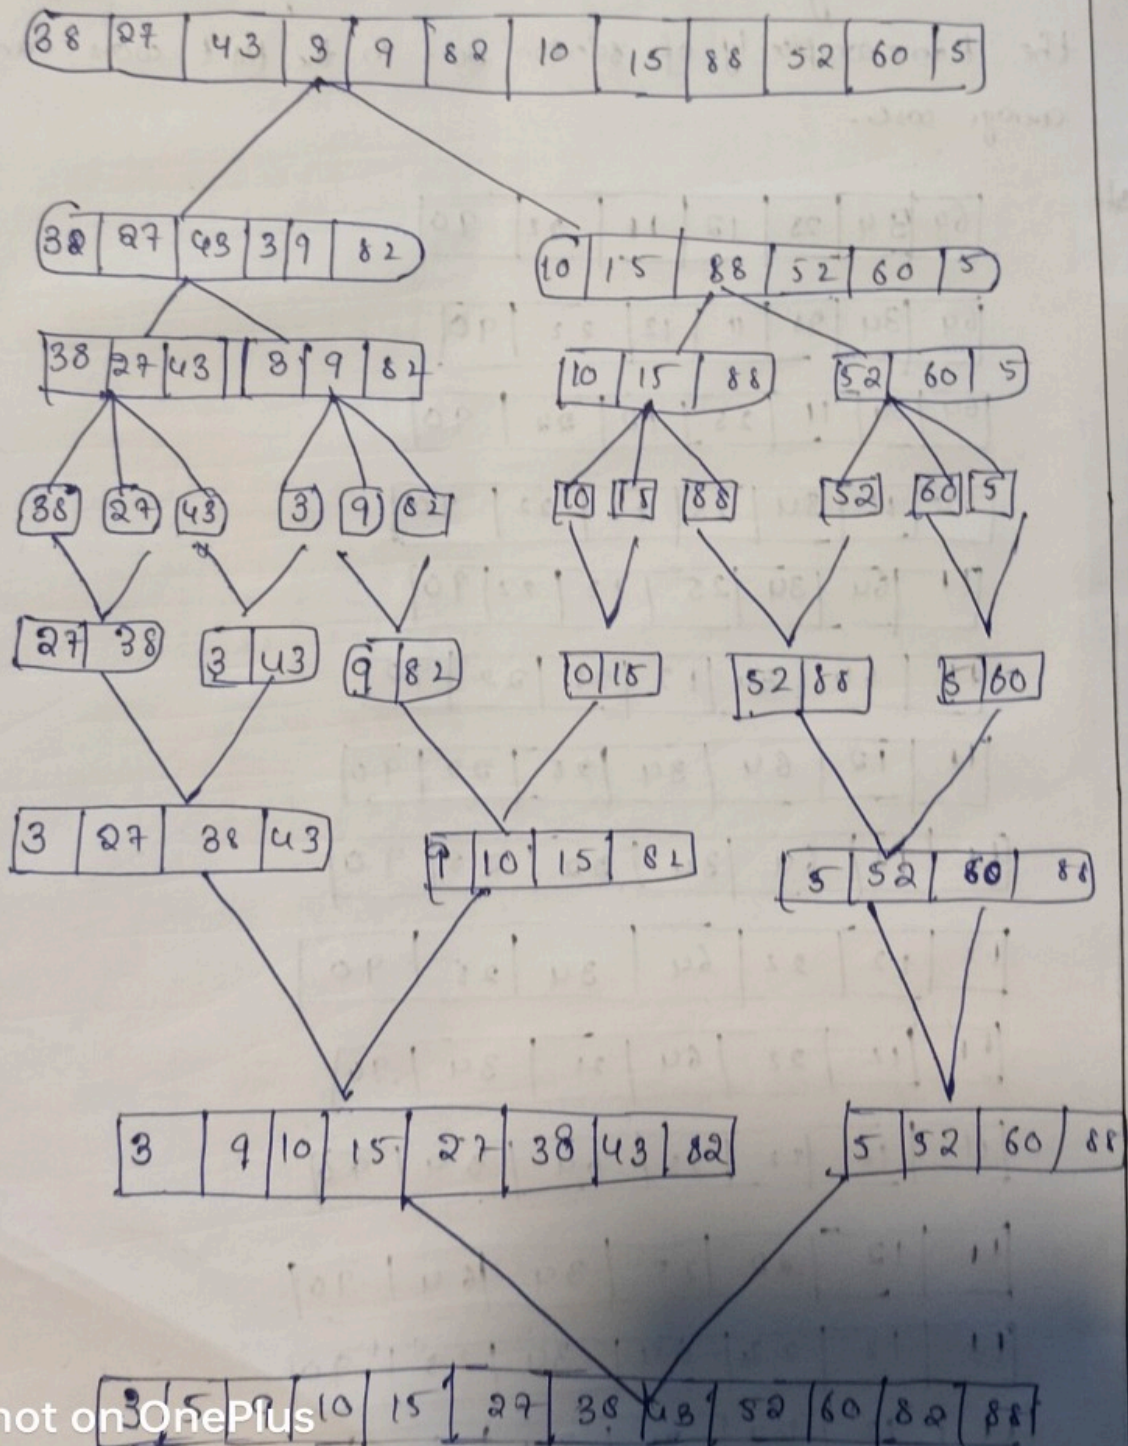 38 27 43 3 9 82 10 15 88 52 60 5
38 27 43 3 9 82
10 15 88 52 60 5
38 27 43 3 9 82
10 15 88
52 60 5
38 27 43 3 9 82 10 15 88 52 60 5
27 38
3 43
9 82
10 15
52 88
5 60
3 27 38 43
9 10 15 82
5 52 60 88
3 9 10 15 27 38 43 82
5 52 60 88
3 5 9 10 15 27 38 43 52 60 82 88
hot on OnePlus